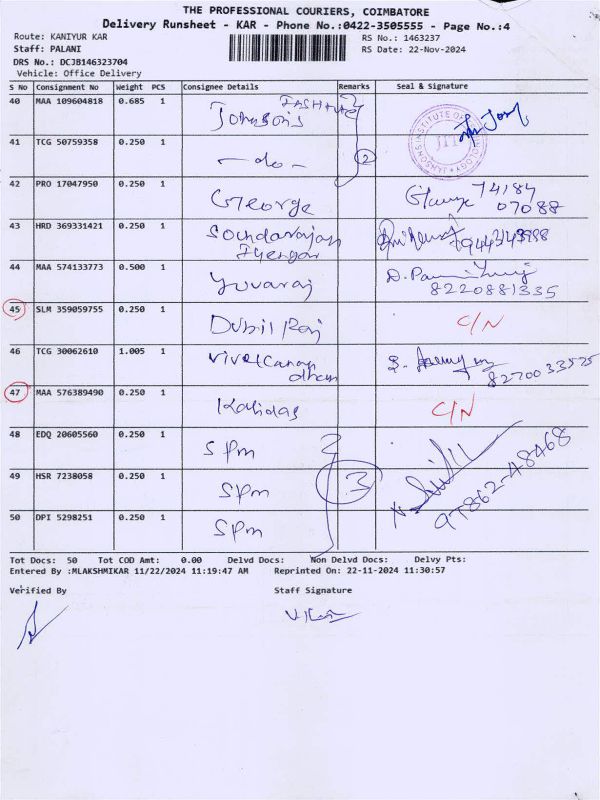 THE PROFESSIONAL COURIERS, COIMBATORE
Delivery Runsheet - KAR - Phone No.:0422-3505555 - Page No.:4
Route: KANIYUR KAR
RS No.: 1463237
Staff: PALANI
RS Date: 22-Nov-2024
DRS No.: DCJB146323704
Vehicle: Office Delivery
S No Consignment No Weight PCS Consignee Details Remarks Seal & Signature
40 MAA 109604818 0.685 1 Johnsons
41 TCG 50759358 0.250 1 - do - 2
42 PRO 17047950 0.250 1 George 74184 07088
43 HRD 369331421 0.250 1 Soundararajan Iyengar
44 MAA 574133773 0.500 1 Yuvaraj 8220881335
45 SLM 359059755 0.250 1 C/N
46 TCG 30062610 1.005 1 8270033525
47 MAA 576389490 0.250 1 Kalidas C/N
48 EDQ 20605560 0.250 1 SPM
49 HSR 7238058 0.250 1 SPM 3 97862-48468
50 DPI 5298251 0.250 1 SPM
Tot Docs: 50 Tot COD Amt: 0.00 Delvd Docs: Non Delvd Docs: Delvy Pts:
Entered By :MLAKSHMIKAR 11/22/2024 11:19:47 AM Reprinted On: 22-11-2024 11:30:57
Verified By Staff Signature